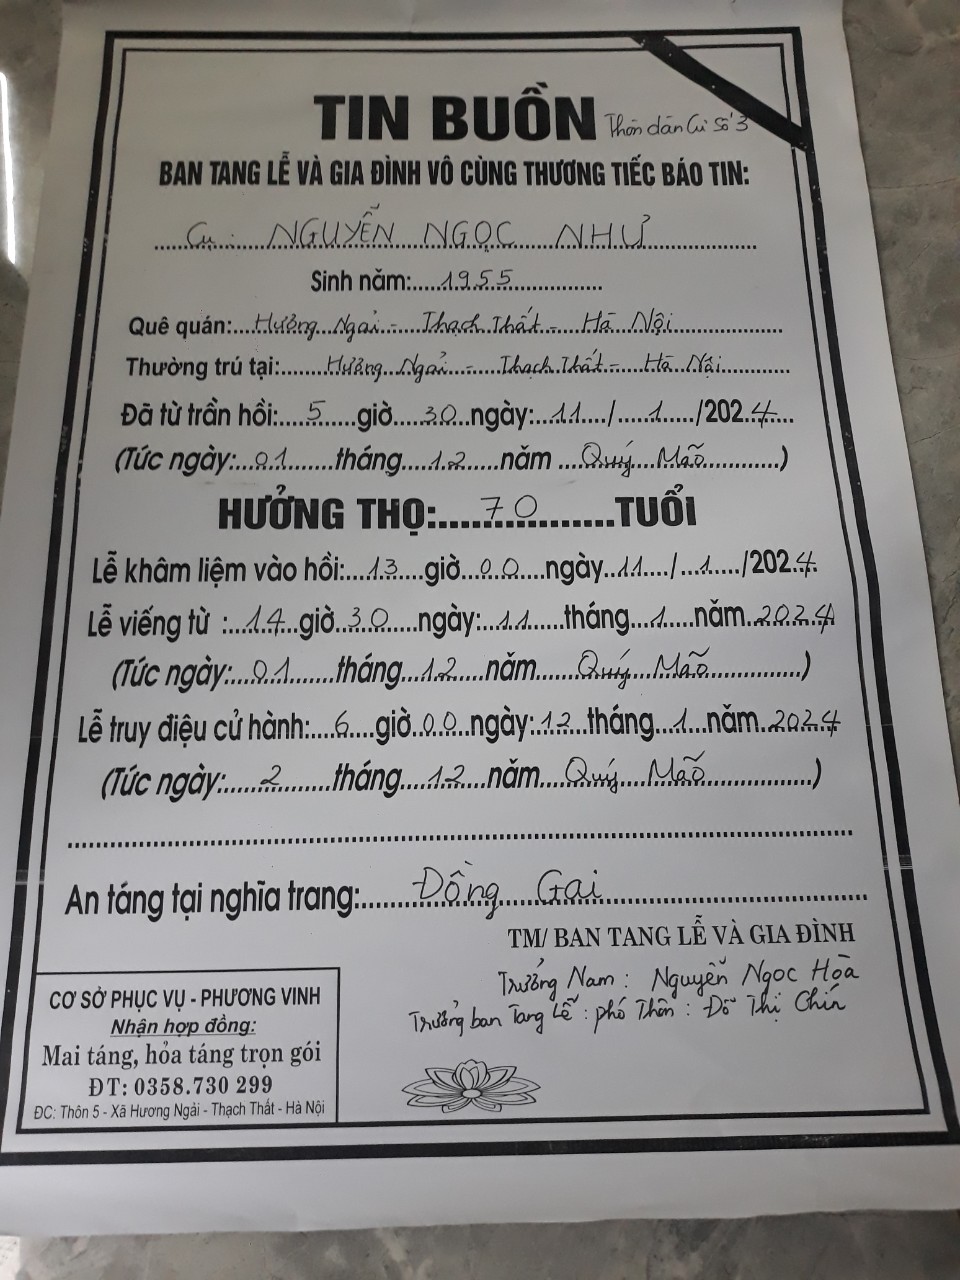 TIN BUỒN Thôn dân cư số 3
BAN TANG LỄ VÀ GIA ĐÌNH VÔ CÙNG THƯƠNG TIẾC BÁO TIN:
Cụ: NGUYỄN NGỌC NHƯ
Sinh năm: 1955
Quê quán: Hưởng Ngải - Thạch Thất - Hà Nội
Thường trú tại: Hưởng Ngải - Thạch Thất - Hà Nội
Đã từ trần hồi: 5 giờ 30 ngày: 11 / 1 /2024
(Tức ngày: 01 tháng 12 năm Quý Mão)
HƯỞNG THỌ: 70 TUỔI
Lễ khâm liệm vào hồi: 13 giờ 00 ngày 11 / 1 /2024
Lễ viếng từ : 14 giờ 30 ngày: 11 tháng 1 năm 2024
(Tức ngày: 01 tháng 12 năm Quý Mão)
Lễ truy điệu cử hành: 6 giờ 00 ngày: 12 tháng 1 năm 2024
(Tức ngày: 2 tháng 12 năm Quý Mão)
An táng tại nghĩa trang: Đồng Gai
TM/ BAN TANG LỄ VÀ GIA ĐÌNH
Trưởng Nam: Nguyễn Ngọc Hòa
Trưởng ban Tang Lễ: phó Thôn: Đỗ Thị Chín
CƠ SỞ PHỤC VỤ - PHƯƠNG VINH
Nhận hợp đồng:
Mai táng, hỏa táng trọn gói
ĐT: 0358.730 299
ĐC: Thôn 5 - Xã Hương Ngải - Thạch Thất - Hà Nội